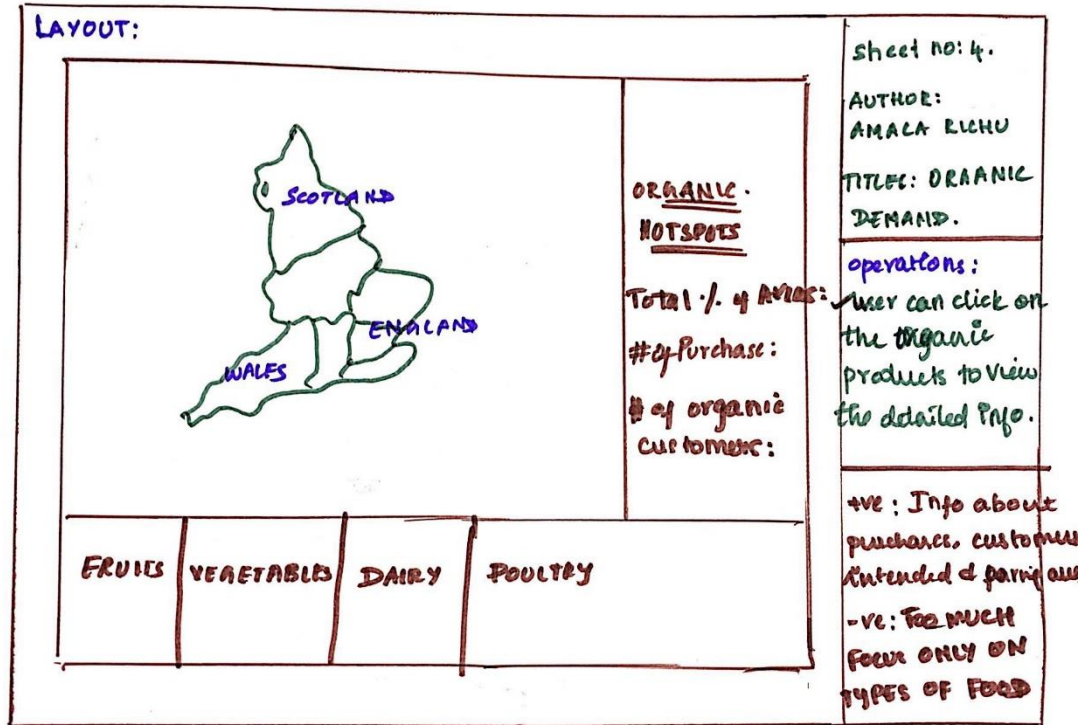 LAYOUT:
SCOTLAND
ENGLAND
WALES
ORGANIC.
HOTSPOTS
Total % of
# of Purchase:
# of organic
customers:
FRUITS
VEGETABLES
DAIRY
POULTRY
sheet no: 4.
AUTHOR:
AMALA RICHU
TITLE: ORGANIC
DEMAND.
operations:
user can click on
the organic
products to view
the detailed info.
+ve: Info about
customers
intended &
-ve: Too MUCH
FOCUS ONLY ON
TYPES OF FOOD